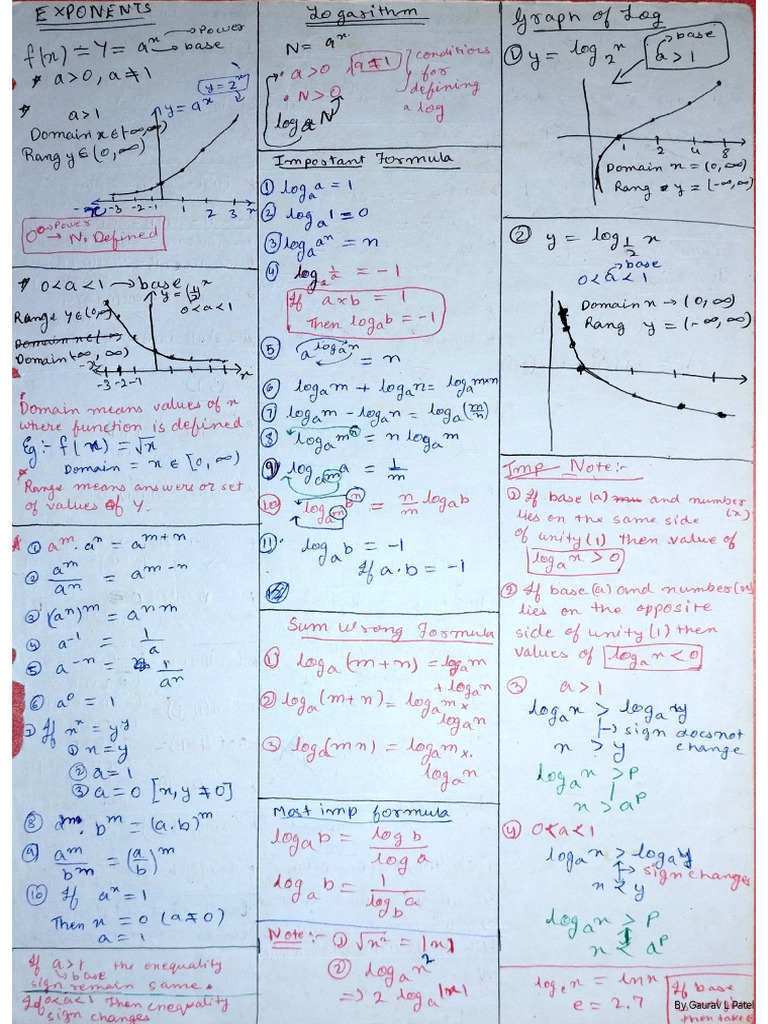 EXPONENTS
f(x) = Y = aˣ → Power
→ base
* a>0, a≠1
y = 2ˣ
* a>1
y = aˣ
Domain x ∈ (-∞, ∞)
Rang y ∈ (0, ∞)
-x -3 -2 -1 1 2 3 x
0⁰ → Power
→ N. Defined
* 0<a<1 → base
y = (1/2)ˣ
0<a<1
Range y ∈ (0, ∞)
Domain (-∞, ∞)
-3 -2 -1 x
Domain means values of x
where function is defined
Eg:- f(x) = √x
Domain = x ∈ [0, ∞)
* Range means answers or set
of values of Y.
① aᵐ · aⁿ = aᵐ⁺ⁿ
② aᵐ/aⁿ = aᵐ⁻ⁿ
③ (aⁿ)ᵐ = aⁿᵐ
④ a⁻¹ = 1/a
⑤ a⁻ⁿ = 1/aⁿ
⑥ a⁰ = 1
⑦ If xˣ = yʸ
① x = y
② a = 1
③ a = 0 [x, y ≠ 0]
⑧ aᵐ · bᵐ = (a.b)ᵐ
⑨ aᵐ/bᵐ = (a/b)ᵐ
⑩ If aˣ = 1
Then x = 0 (a≠0)
a = 1
If a>1 the enequality
→ base
sign remain same.
If 0<a<1 Then enequality
sign changes
Logarithm
N = aˣ
• a>0 a≠1
• N>0
conditions
for
defining
a log
logₐN
Important Formula
① logₐa = 1
② logₐ1 = 0
③ logₐaⁿ = n
④ logₐ 1/a = -1
If a×b = 1
Then logₐb = -1
⑤ a^(logₐn) = n
⑥ logₐm + logₐn = logₐm×n
⑦ logₐm - logₐn = logₐ(m/n)
⑧ logₐmⁿ = n logₐm
⑨ log_(aᵐ) a = 1/m
⑩ log_(aᵐ) bⁿ = n/m logₐb
11. logₐb = -1
If a.b = -1
Sum Wrong Formula
① logₐ(m+n) = logₐm
+ logₐn
② logₐ(m+n) = logₐm ×
logₐn
③ logₐ(mn) = logₐm ×.
logₐn
Most imp formula
logₐb = log b / log a
logₐb = 1 / log_b a
Note:- ① √x² = |x|
② logₐx²
⇒ 2 logₐ|x|
Graph of Log
① y = log₂x
→ base
a>1
1 2 4 8
Domain x = (0, ∞)
Rang y = (-∞, ∞)
② y = log_(1/2) x
→ base
0<a<1
Domain x → (0, ∞)
Rang y = (-∞, ∞)
Imp Note:-
① If base (a) and number
(x)
lies on the same side
of unity (1) then value of
logₐx > 0
② If base (a) and number (x)
lies on the opposite
side of unity (1) then
values of logₐx < 0
③ a>1
logₐx > logₐy
→ sign does not
change
x > y
logₐx > P
x > aᴾ
④ 0<a<1
logₐx > logₐy
→ sign changes
x < y
logₐx > P
x < aᴾ
logₑx = lnx
e = 2.7
If base
then take e
By Gaurav L Patel